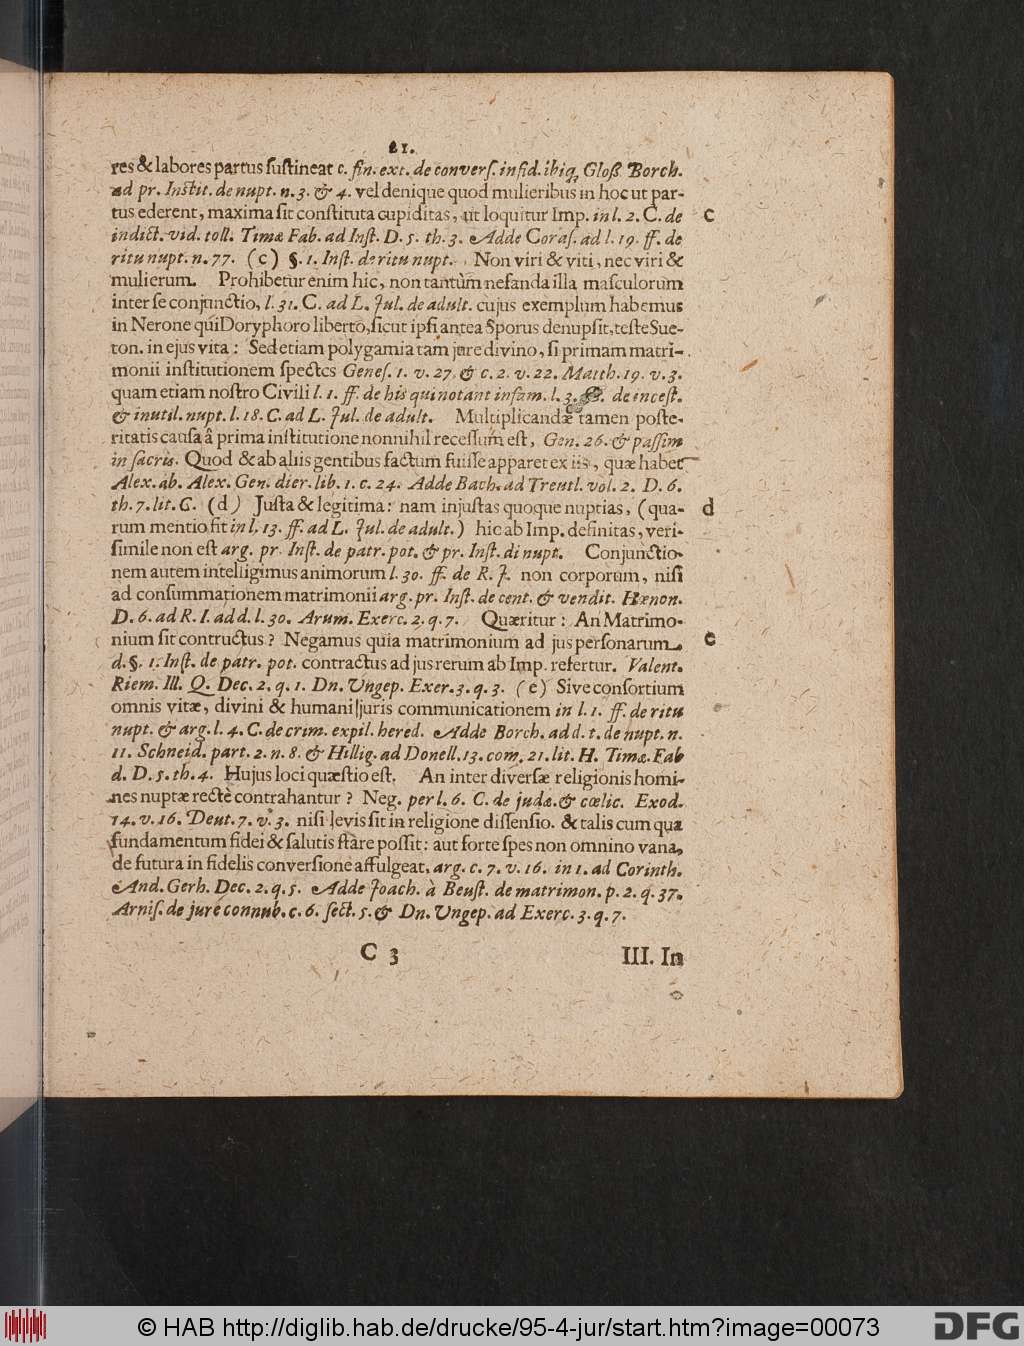 21.
res & labores partus sustineat c. fin. ext. de convers. infid. ibiq; Gloß Borch.
ad pr. Instit. de nupt. n. 3. & 4. vel denique quod mulieribus in hoc ut par-
tus ederent, maxima sit constituta cupiditas, ut loquitur Imp. in l. 2. C. de
C
indict. vid. toll. Timæ Fab. ad Inst. D. 5. th. 3. Adde Coras. ad l. 19. ff. de
ritu nupt. n. 77. (c) §. 1. Inst. de ritu nupt. Non viri & viti, nec viri &
mulierum. Prohibetur enim hic, non tantùm nefanda illa masculorum
inter se conjunctio, l. 31. C. ad L. Jul. de adult. cujus exemplum habemus
in Nerone qui Doryphoro liberto, sicut ipsi antea Sporus denupsit, teste Sue-
ton. in ejus vita: Sed etiam polygamia tam jure divino, si primam matri-
monii institutionem spectes Genes. 1. v. 27. & c. 2. v. 22. Matth. 19. v. 3.
quam etiam nostro Civili l. 1. ff. de his qui notant infam. l. 3. de incest.
& inutil. nupt. l. 18. C. ad L. Jul. de adult. Multiplicandæ tamen poste-
ritatis causa â prima institutione nonnihil recessum est, Gen. 26. & passim
in sacris. Quod & ab aliis gentibus factum fuisse apparet ex iis, quæ habet
Alex. ab. Alex. Gen. dier. lib. 1. c. 24. Adde Bach. ad Treutl. vol. 2. D. 6.
th. 7. lit. C. (d) Justa & legitima: nam injustas quoque nuptias, (qua-
d
rum mentio fit in l. 13. ff. ad L. Jul. de adult.) hic ab Imp. definitas, veri-
simile non est arg. pr. Inst. de patr. pot. & pr. Inst. di nupt. Conjunctio-
nem autem intelligimus animorum l. 30. ff. de R. J. non corporum, nisi
ad consummationem matrimonii arg. pr. Inst. de cent. & vendit. Hænon.
D. 6. ad R. I. add. l. 30. Arum. Exerc. 2. q. 7. Quæritur: An Matrimo-
nium sit contructus? Negamus quia matrimonium ad jus personarum
e
d. §. 1. Inst. de patr. pot. contractus ad jus rerum ab Imp. refertur. Valent.
Riem. Ill. Q. Dec. 2. q. 1. Dn. Ungep. Exer. 3. q. 3. (e) Sive consortium
omnis vitæ, divini & humani juris communicationem in l. 1. ff. de ritu
nupt. & arg. l. 4. C. de crim. expil. hered. Adde Borch. ad d. t. de nupt. n.
11. Schneid. part. 2. n. 8. & Hillig. ad Donell. 13. com. 21. lit. H. Timæ. Fab
d. D. 5. th. 4. Hujus loci quæstio est. An inter diversæ religionis homi-
nes nuptæ rectè contrahantur? Neg. per l. 6. C. de judæ. & cœlic. Exod.
14. v. 16. Deut. 7. v. 3. nisi levis sit in religione dissensio. & talis cum qua
fundamentum fidei & salutis stare possit: aut forte spes non omnino vana,
de futura in fidelis conversione affulgeat, arg. c. 7. v. 16. in 1. ad Corinth.
And. Gerh. Dec. 2. q. 5. Adde Joach. à Beust. de matrimon. p. 2. q. 37.
Arnis. de jure connub. c. 6. sect. 5. & Dn. Ungep. ad Exerc. 3. q. 7.
C 3
III. In
© HAB http://diglib.hab.de/drucke/95-4-jur/start.htm?image=00073
DFG